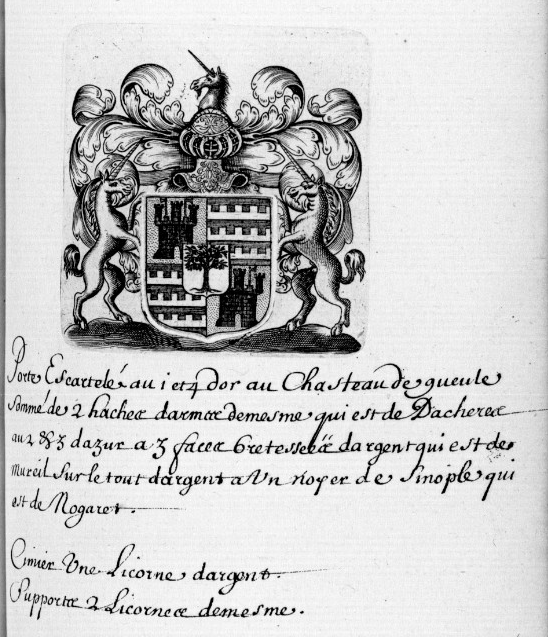 Porte Escartelé au 1 et 4 dor au Chasteau de gueule
sommé de 2 haches darmes demesme qui est de Dacheres
au 2 & 3 dazur a 3 faces bretessées dargent qui est de
mureil sur le tout dargent a Un noyer de sinople qui
est de Nogaret.
Cimier Une Licorne dargent.
Supports 2 Licornes demesme.